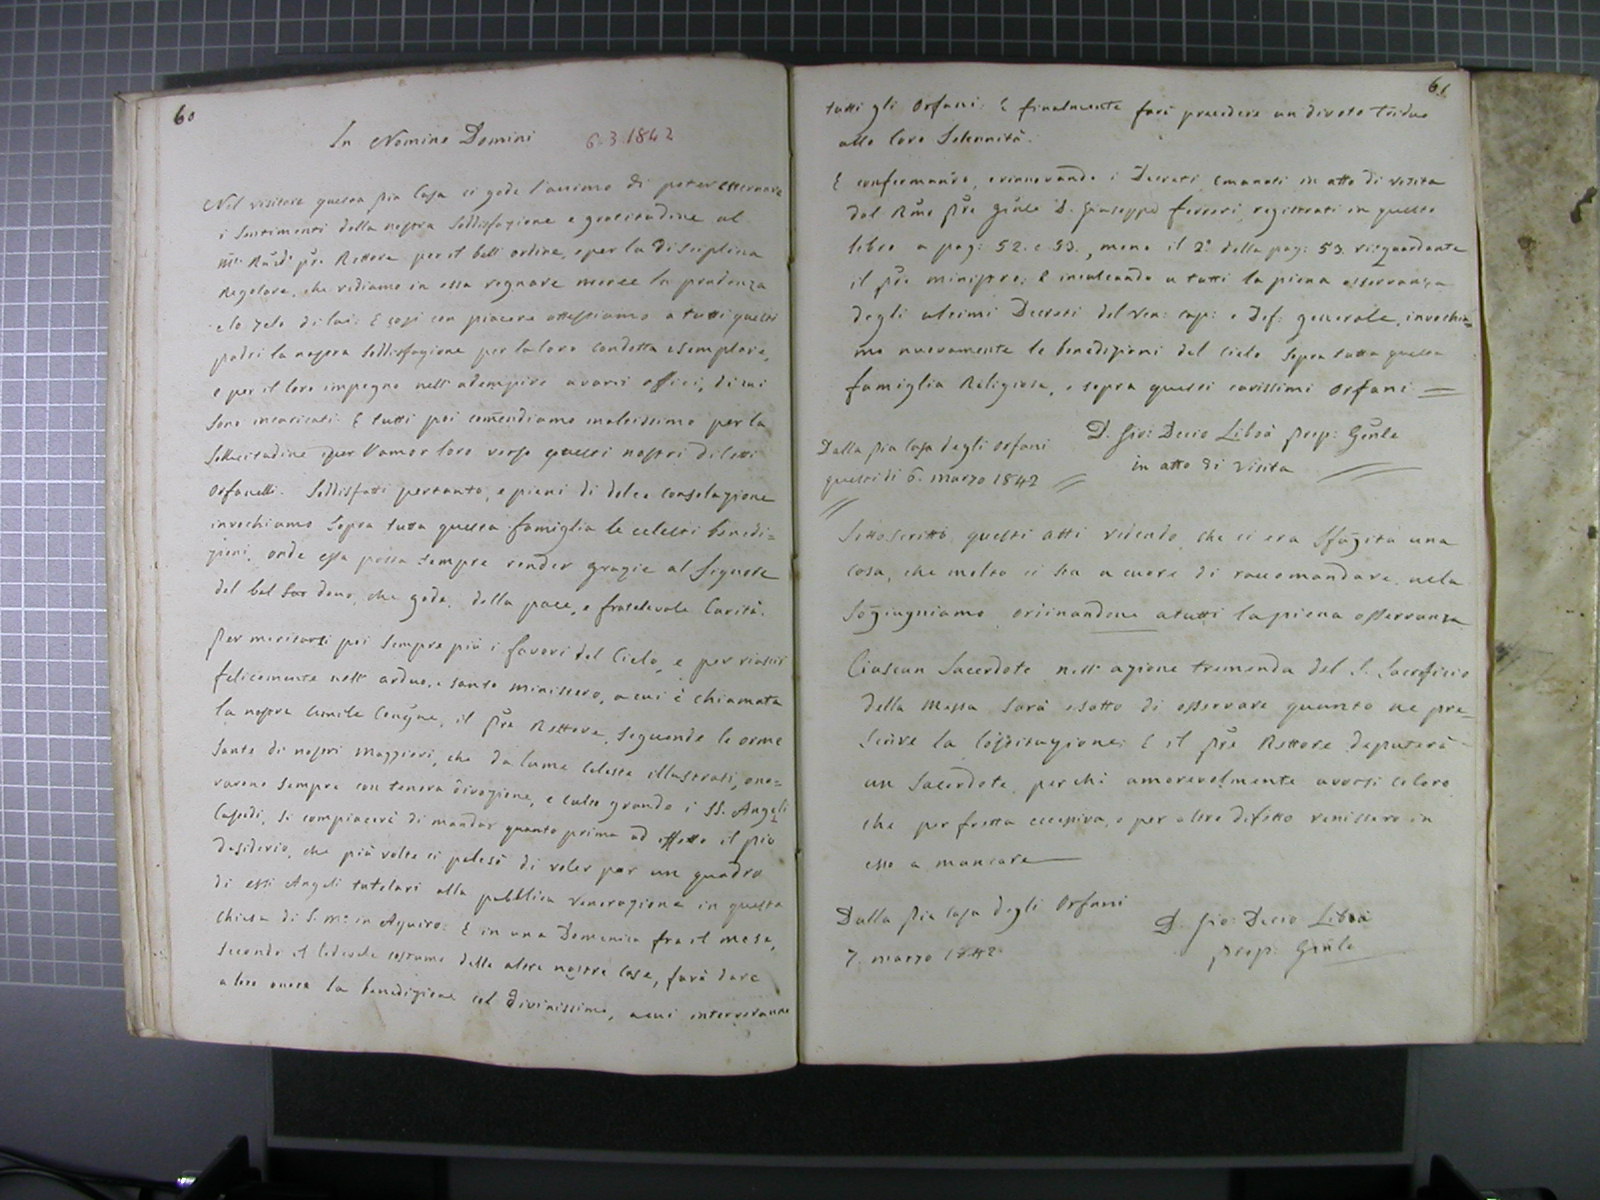 60
In Nomine Domini 6.3.1842
Nel visitare questa pia Casa ci gode l'animo di poter esternare
i sentimenti della nostra soddisfazione e gratitudine al
Rettore per il bell' ordine, e per la disciplina
Regolare, che vediamo in essa regnare mercè la prudenza
e lo zelo di lui: E così con piacere attestiamo a tutti questi
padri la nostra soddisfazione per la loro condotta esemplare,
e per il loro impegno nell' adempire a varii offici, di cui
sono incaricati. E tutti poi comendiamo moltissimo per la
sollecitudine e per l'amor loro verso questi nostri diletti
Orfanelli. Soddisfatti pertanto, e pieni di dolce consolazione
invochiamo sopra tutta questa famiglia le celesti benedi=
zioni, onde essa possa sempre render grazie al Signore
del bel dono, che gode, della pace, e fratelevole Carità.
Per meritarsi poi sempre più i favori del Cielo, e per riuscir
felicemente nell' arduo, e santo ministero, a cui è chiamata
la nostra umile Congne, il Pre Rettore, seguendo le orme
sante di nostri Maggiori, che da lume celeste illustrati, ono=
rarono sempre con tenera divozione, e culto grande i SS. Angeli
Custodi, si compiacerà di mandar quanto prima ad effetto il pio
desiderio, che più volte ci palesò di voler por un quadro
di essi Angeli tutelari alla pubblica venerazione in questa
chiesa di S. Ma in Aquiro: E in una Domenica fra il mese,
secondo il lodevole costume delle altre nostre Case, farà dare
a loro onore la benedizione col Divinissimo, a cui interveranno
61
tutti gli Orfani: E finalmente farà precedere un divoto triduo
alla loro Solennità.
E confermando, e rinnovando i Decreti emanati in atto di visita
dal Rmo Pre Gnle D. Giuseppe Ferreri, registrati in questo
libro a pag: 52. e 53., meno il 2° della pag: 53. risguardante
il Pre ministro; E inculcando a tutti la piena osservanza
degli ultimi Decreti del Ven: Cap: e Def: generale, invochia=
mo nuovamente le benedizioni del Cielo sopra tutta questa
famiglia Religiosa, e sopra questi carissimi Orfani =
Dalla Pia Casa degli Orfani
questo di 6. Marzo 1842
D. Gio: Decio Liboà Prep: Gnle
in atto di visita
Sottoscritti questi atti vedendo, che ci era sfugita una
cosa, che molto ci sta a cuore di raccomandare, ue la
sogiugniamo ordinandone a tutti la piena osservanza
Ciascun Sacerdote nell' azione tremenda del S. Sacrificio
della Messa sarà esatto di osservare quanto ne pre=
scrive la Costituzione; E il Pre Rettore deputerà
un Sacerdote, perchè amorevolmente avvisi coloro
che per fretta eccessiva, o per altro difetto venissero in
esso a mancare
Dalla Pia Casa degli Orfani
7. marzo 1842
D. Gio: Decio Liboà
Prep: Gnle